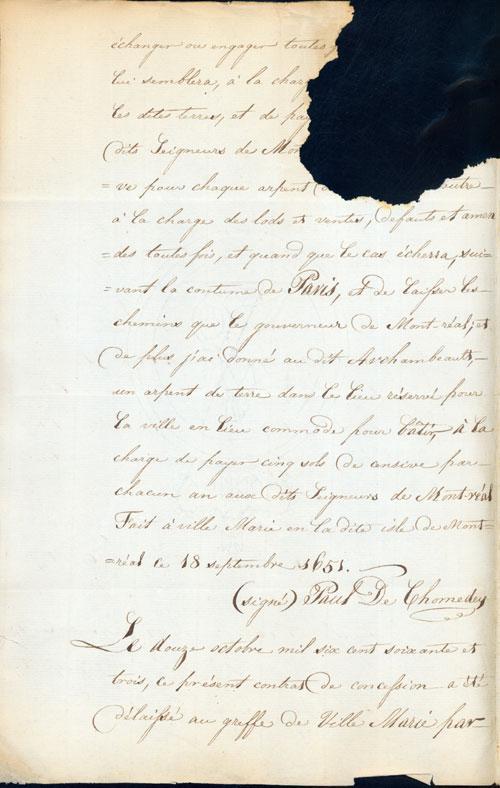 échanger ou engager toutes
lui semblera, à la charg
les dites terres, et de pay
dits Seigneurs de Mon
=ve pour chaque arpent outre
à la charge des lods et ventes, defauts et amen
=des toutes fois, et quand que le cas écherra, sui=
=vant la coutume de Paris, et de laisser les
chemins que le gouverneur de Mont-réal; et
de plus j'ai donné au dit Archambeault,
un arpent de terre dans le lieu réservé pour
la ville en lieu commode pour bâtir, à la
charge de payer cinq sols de censive par
chacun an aux dits Seigneurs de Mont-réal
Fait à ville Marie en la dite isle de Mont=
=réal ce 18 septembre 1651.
(signé) Paul De Chomedey
Le douze octobre mil six cent soixante et
trois, ce présent contrat de concession a été
délaissé au greffe de Ville Marie par